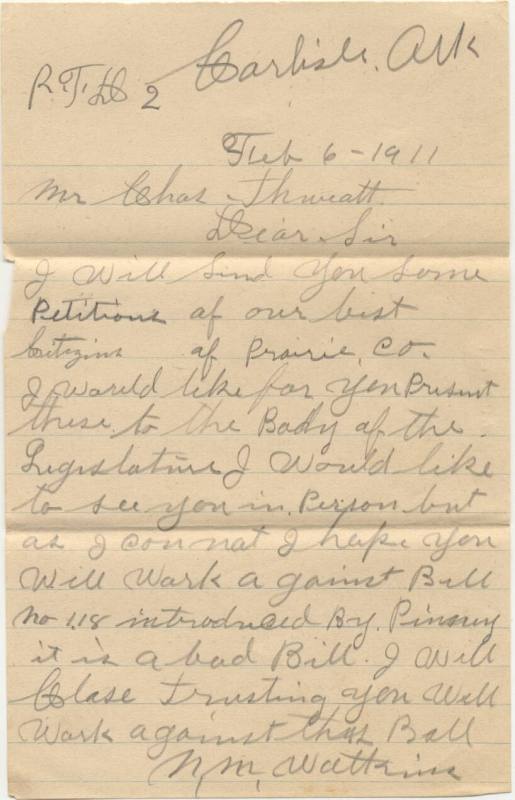 Carlisle, Ark
R.F.D 2
Feb 6-1911
Mr Chas Thweatt
Dear Sir
I Will Send You Some
Petitions of our best
Citizins of Prairie, Co.
I Would like for You Present
these to the Body of the
Legislature I Would like
to see you in Person but
as I Con not I hope You
Will Work a gainst Bill
No 118 introduced By Pinney
it is a bad Bill. I Will
Close Trusting you Will
Work against this Bill
N, M, Watkins